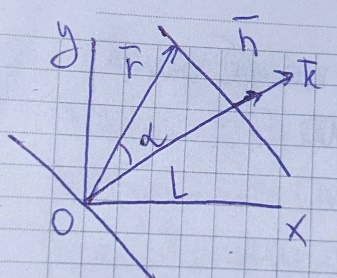 y
r̄
n̄
k̄
α
L
O
x